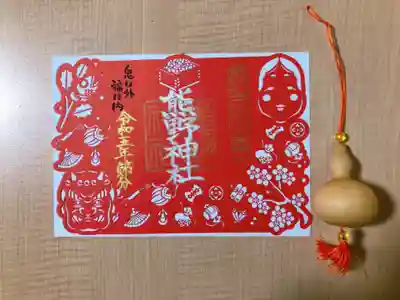 熊野神社
鬼は外
福は内
令和三年節分